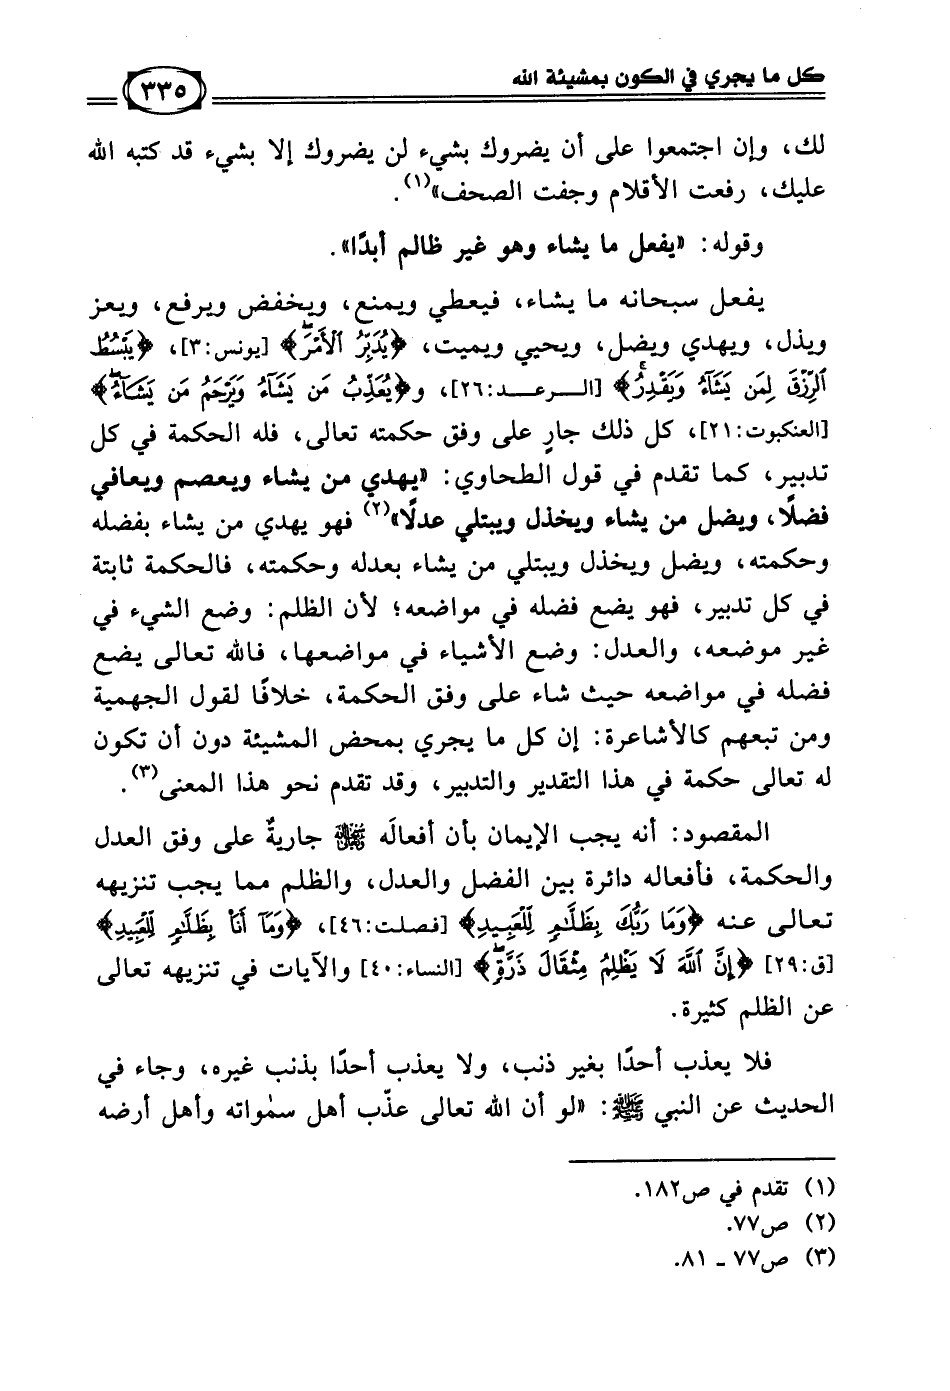 كل ما يجري في الكون بمشيئة الله
٣٣٥
لك، وإن اجتمعوا على أن يضروك بشيء لن يضروك إلا بشيء قد كتبه الله
عليك، رفعت الأقلام وجفت الصحف»(١).
وقوله: «يفعل ما يشاء وهو غير ظالم أبدًا».
يفعل سبحانه ما يشاء، فيعطي ويمنع، ويخفض ويرفع، ويعز
ويذل، ويهدي ويضل، ويحيي ويميت، ﴿يُدَبِّرُ ٱلۡأَمۡرَۖ﴾ [يونس:٣]، ﴿يَبۡسُطُ
ٱلرِّزۡقَ لِمَن يَشَآءُ وَيَقۡدِرُۚ﴾ [الرعد:٢٦]، و﴿يُعَذِّبُ مَن يَشَآءُ وَيَرۡحَمُ مَن يَشَآءُۖ﴾
[العنكبوت:٢١]، كل ذلك جارٍ على وفق حكمته تعالى، فله الحكمة في كل
تدبير، كما تقدم في قول الطحاوي: «يهدي من يشاء ويعصم ويعافي
فضلًا، ويضل من يشاء ويخذل ويبتلي عدلًا»(٢) فهو يهدي من يشاء بفضله
وحكمته، ويضل ويخذل ويبتلي من يشاء بعدله وحكمته، فالحكمة ثابتة
في كل تدبير، فهو يضع فضله في مواضعه؛ لأن الظلم: وضع الشيء في
غير موضعه، والعدل: وضع الأشياء في مواضعها، فالله تعالى يضع
فضله في مواضعه حيث شاء على وفق الحكمة، خلافًا لقول الجهمية
ومن تبعهم كالأشاعرة: إن كل ما يجري بمحض المشيئة دون أن تكون
له تعالى حكمة في هذا التقدير والتدبير، وقد تقدم نحو هذا المعنى(٣).
المقصود: أنه يجب الإيمان بأن أفعالَه ﷻ جاريةٌ على وفق العدل
والحكمة، فأفعاله دائرة بين الفضل والعدل، والظلم مما يجب تنزيهه
تعالى عنه ﴿وَمَا رَبُّكَ بِظَلَّٰمٖ لِّلۡعَبِيدِ﴾ [فصلت:٤٦]، ﴿وَمَآ أَنَا۠ بِظَلَّٰمٖ لِّلۡعَبِيدِ﴾
[ق:٢٩] ﴿إِنَّ ٱللَّهَ لَا يَظۡلِمُ مِثۡقَالَ ذَرَّةٖۖ﴾ [النساء:٤٠] والآيات في تنزيهه تعالى
عن الظلم كثيرة.
فلا يعذب أحدًا بغير ذنب، ولا يعذب أحدًا بذنب غيره، وجاء في
الحديث عن النبي ﷺ: «لو أن الله تعالى عذّب أهل سمٰواته وأهل أرضه
(١) تقدم في ص١٨٢.
(٢) ص٧٧.
(٣) ص٧٧ ـ ٨١.